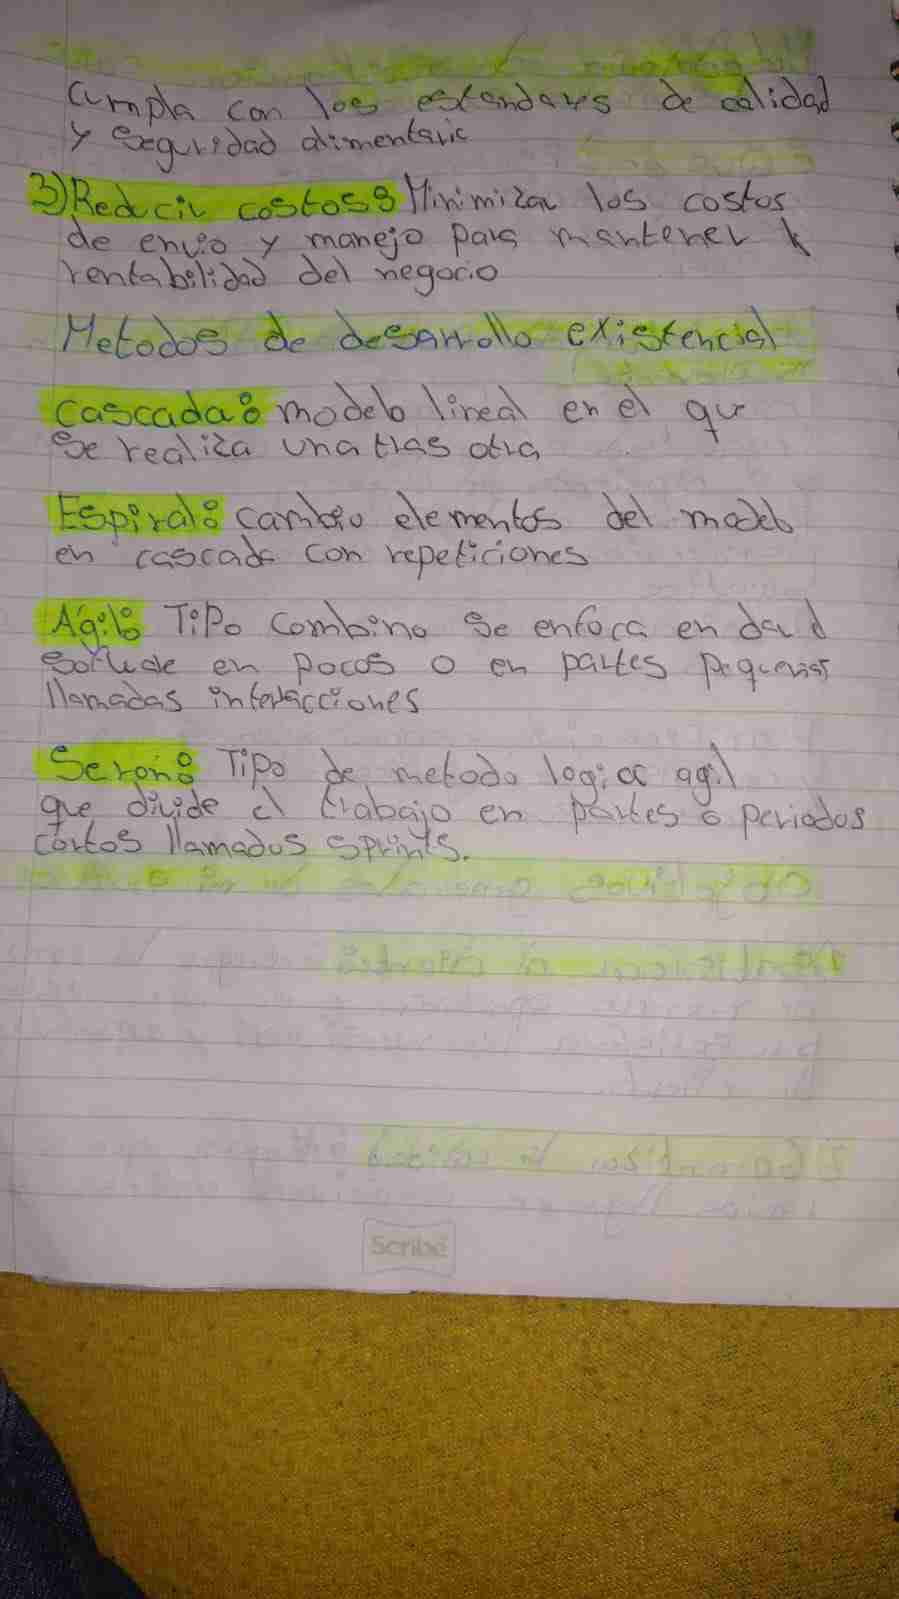 Cumpla con los estandars de calidad
y seguridad alimentaric
3) Reducir costos: Minimizar los costos
de envio y manejo para mantener
rentabilidad del negocio
Metodos de desarrollo existencial
Cascada: modelo lineal en el que
se realiza una tras otra
Espiral: cambio elementos del modelo
en cascada con repeticiones
Ágil: Tipo combino se enfoca en
en pocos o en partes pequeñas
llamadas interacciones
Seron: Tipo de metodo logica agil
que divide el trabajo en partes o periodos
cortos llamados sprints.
Scribe